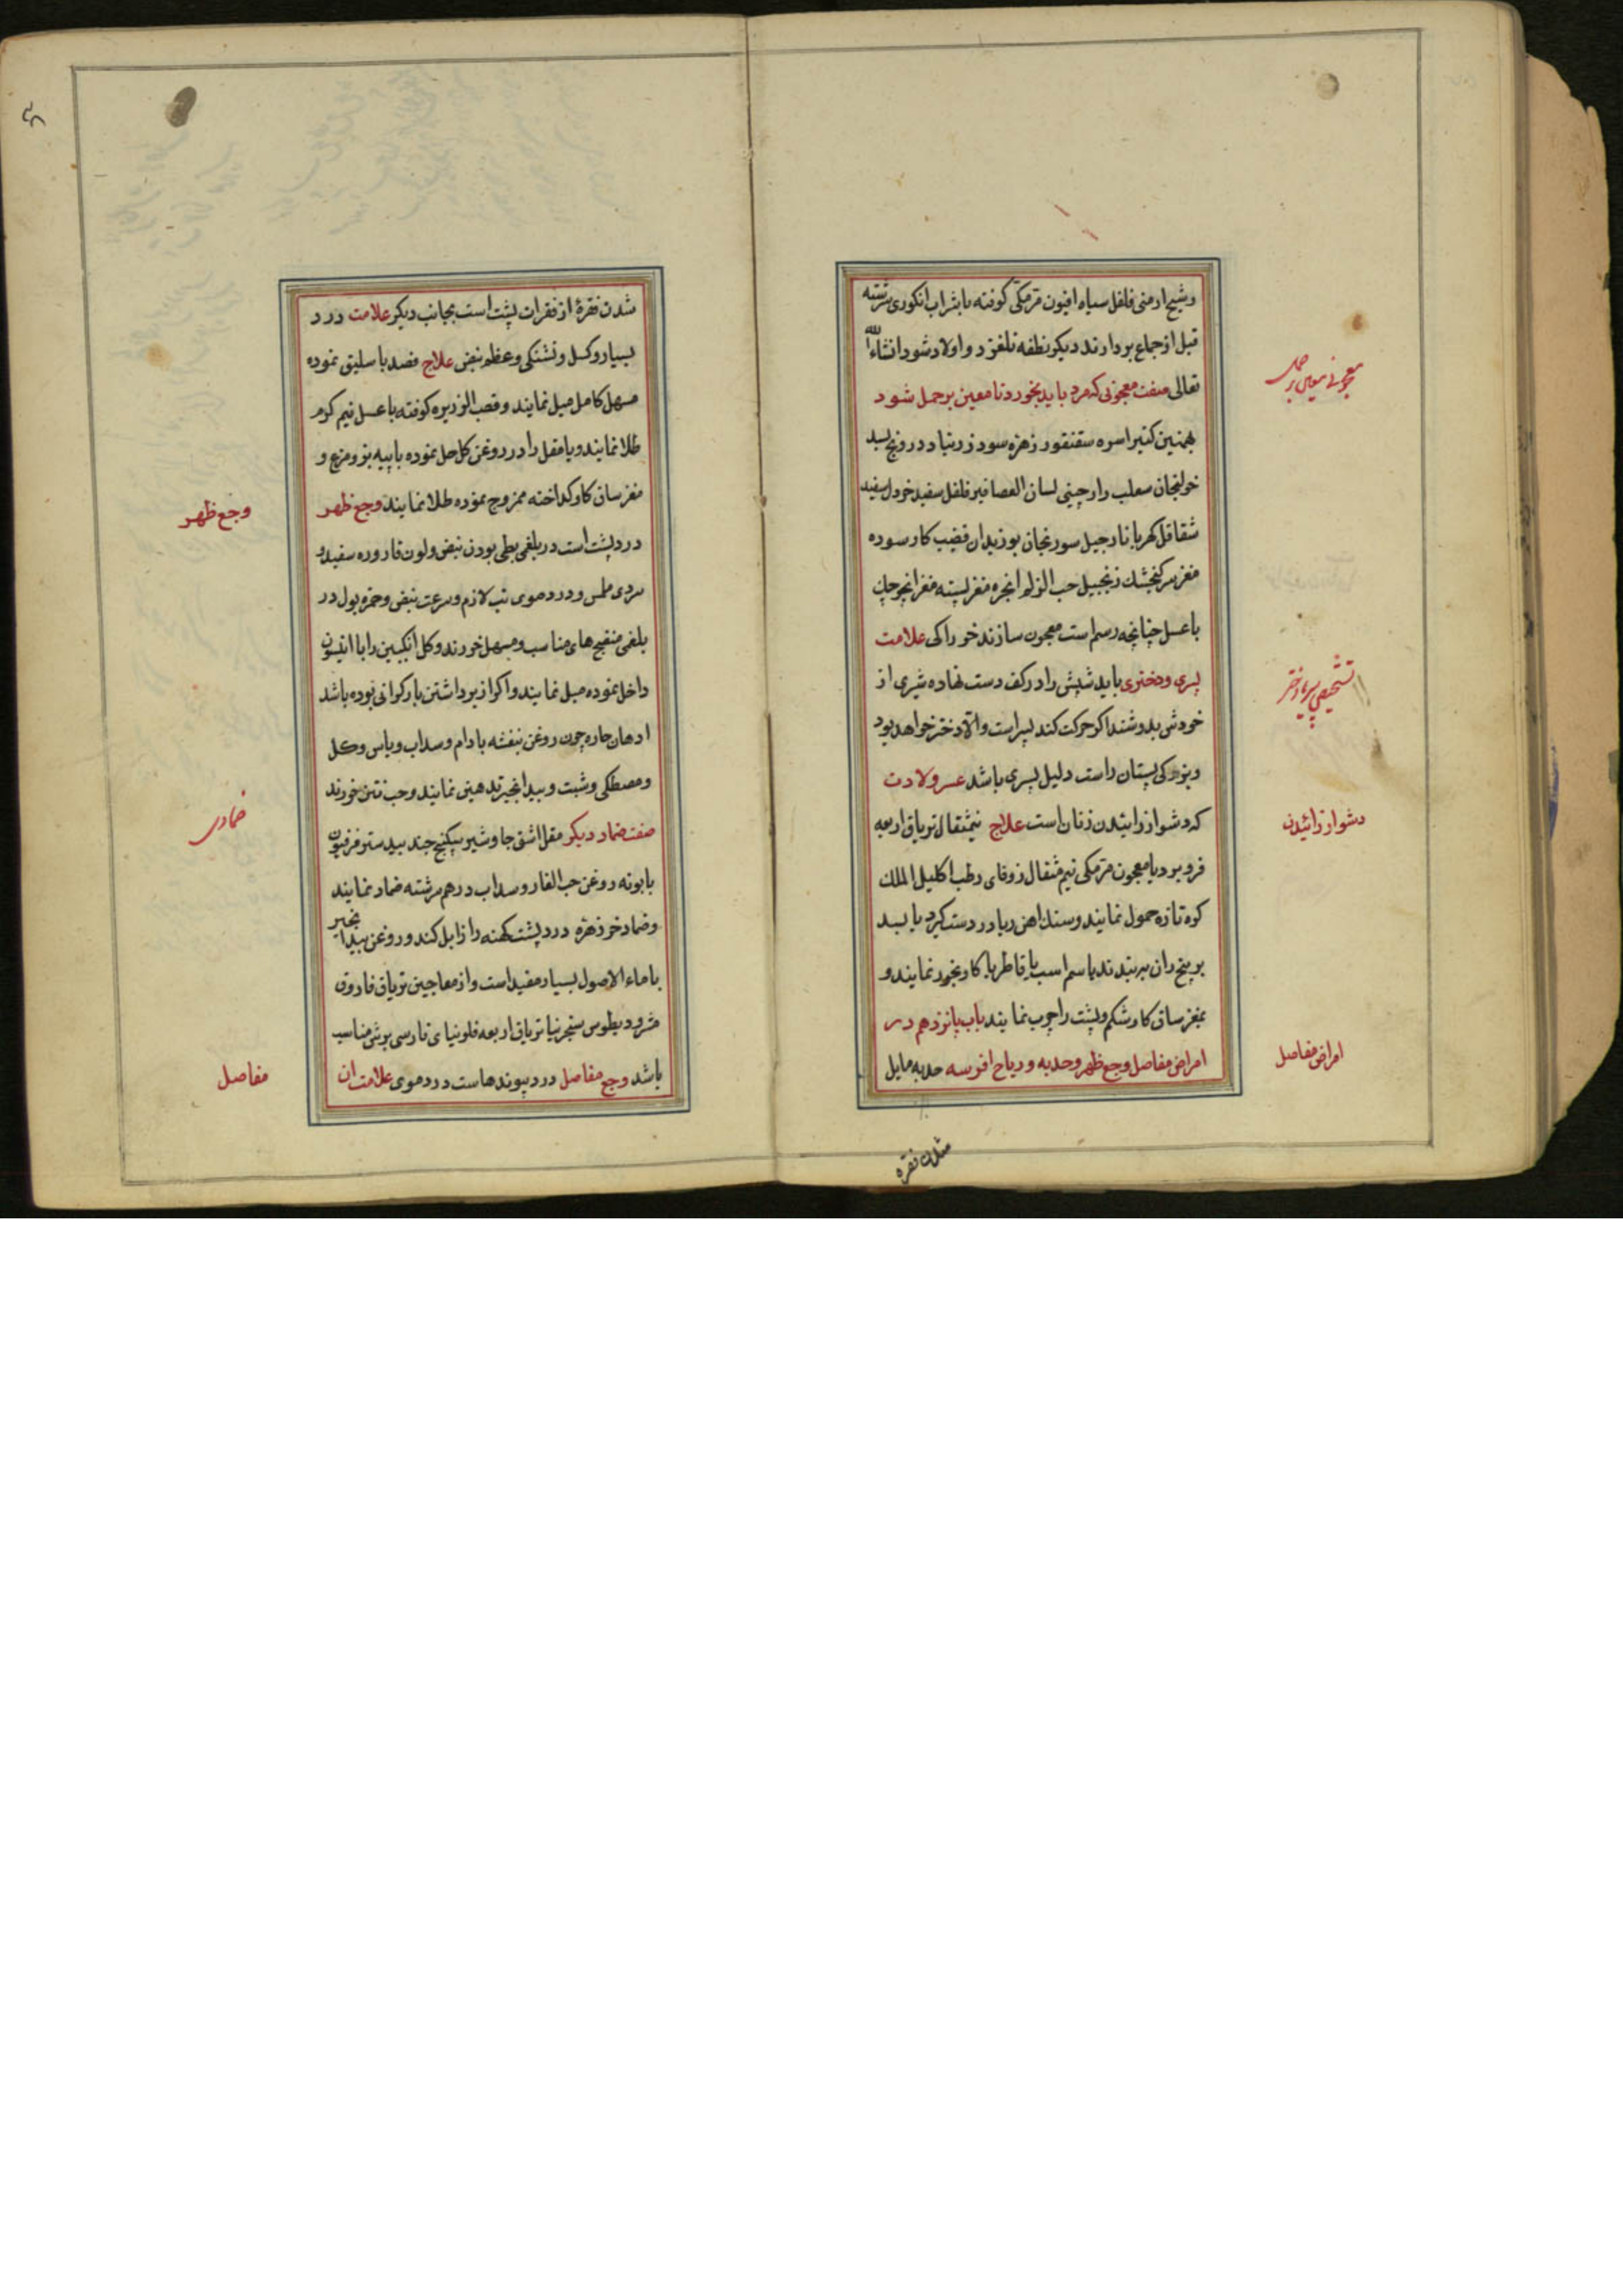 وشیح ارمنی فلفل سیاه افیون مرمکی کوفته با شراب انکوری سرشته
قبل از جماع بردارند دیکر نطفه نلغزد و اولاد شود انشاءالله
تعالی صفت معجونی که مرد باید بخورد تا معین بر حمل شود
بهمنین کتیرا سره سقنقور زهره سود زرنباد درونج لبد
خولنجان سعلب دارچینی لسان العصافیر فلفل سفید خردل سفید
شقاقل کهربا نارجیل سورنجان بوزیدان قضیب کاو سوده
مغز سر کنجشک زنجبیل حب الزلم انجره مغز پسته مغز
با عسل چنانچه رسم است معجون سازند خوراکی علامت
پسری و دختری باید شپش را در کف دست نهاده شیری از
خودش بدوشند اکر حرکت کند پسر است والا دختر خواهد بود
و بزرکی پستان راست دلیل پسری باشد عسر ولادت
که دشوار زائیدن زنان است علاج نیمثقال تریاق اربعه
فرو برد یا معجون مرمکی نیم مثقال زوفای رطب اکلیل الملک
کوه تازه حمول نمایند و سنک اهن ربا در دست کیرد یا بسد
بر بیخ ران به بندند یا سم اسب یا قاطر یا کاو بخور نمایند و
بمغز ساق کاو شکم و پشت را چرب نمایند باب پانزدهم در
امراض مفاصل وجع ظهر و حدبه و ریاح افرسه حدبه مایل
معجونی معین بر حمل
تشخیص پسر یا دختر
دشوار زائیدن
امراض مفاصل
شدن فقره
شدن فقرهٔ از فقرات پشت است بجانب دیکر علامت درد
بسیار و کسل و تشنکی و عظم نبض علاج فصد باسلیق نموده
مسهل کامل میل نمایند و قصب الزریره کوفته با عسل نیم کرم
طلا نمایند و یا مقل را در روغن کل حل نموده با پیه بز و مرغ و
مغز ساق کاو کداخته ممزوج نموده طلا نمایند وجع ظهر
درد پشت است در بلغمی بطی بودن نبض و لون قاروره سفید و
سردی ملمس و در دموی تب لازم و سرعت نبض و حمره بول در
بلغمی منضج های مناسب و مسهل خورند و کل انکبین را با انیسون
داخل نموده میل نمایند و اکر از برداشتن بار کرانی بوده باشد
ادهان حاره چون روغن بنفشه بادام و سداب و یاس و کل
و مصطکی و شبت و بیدانجیر تدهین نمایند و حب نتن خورند
صفت ضماد دیکر مقل اشق جاوشیر سکبینج جند بیدستر فرفیون
بابونه روغن حب الغار و سداب درهم سرشته ضماد نمایند
و ضماد خرزهره درد پشت کهنه را زایل کند و روغن بیدانجیر
با ماء الاصول بسیار مفید است و از معاجین تریاق فاروق
مثرودیطوس سنجرنیا تریاق اربعه فلونیای فارسی برشی مناسب
باشد وجع مفاصل درد پیوندهاست در دموی علامت ان
وجع ظهر
ضمادی
مفاصل